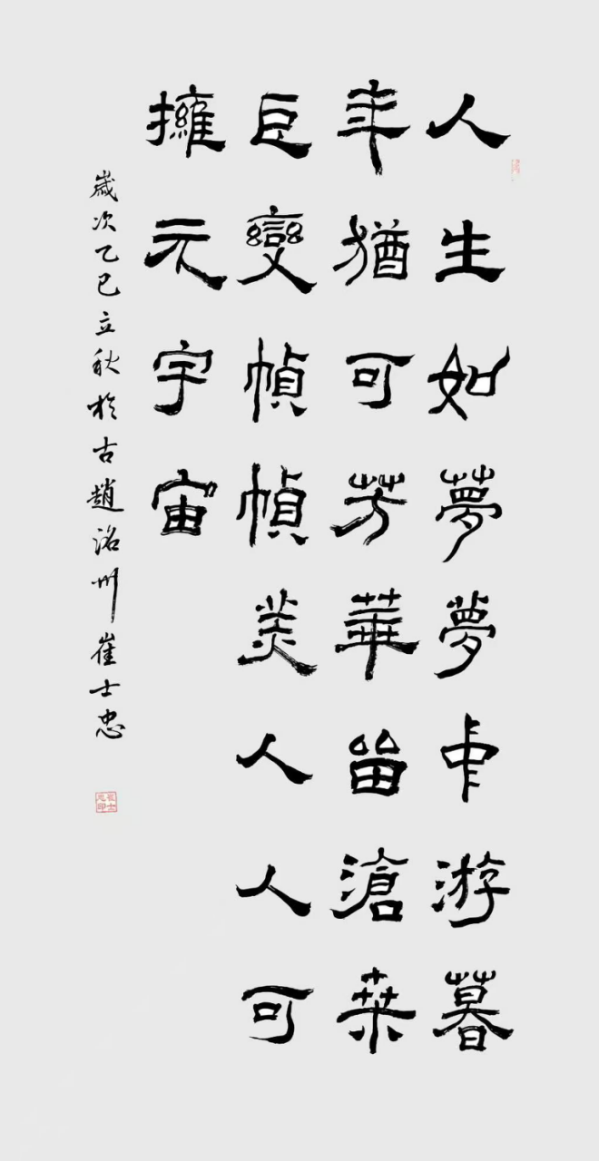 人生如夢夢中游暮
年猶可芳華留滄桒
巨變幀幀美人人可
擁元宇宙
歲次乙巳立秋於古趙洺州崔士忠